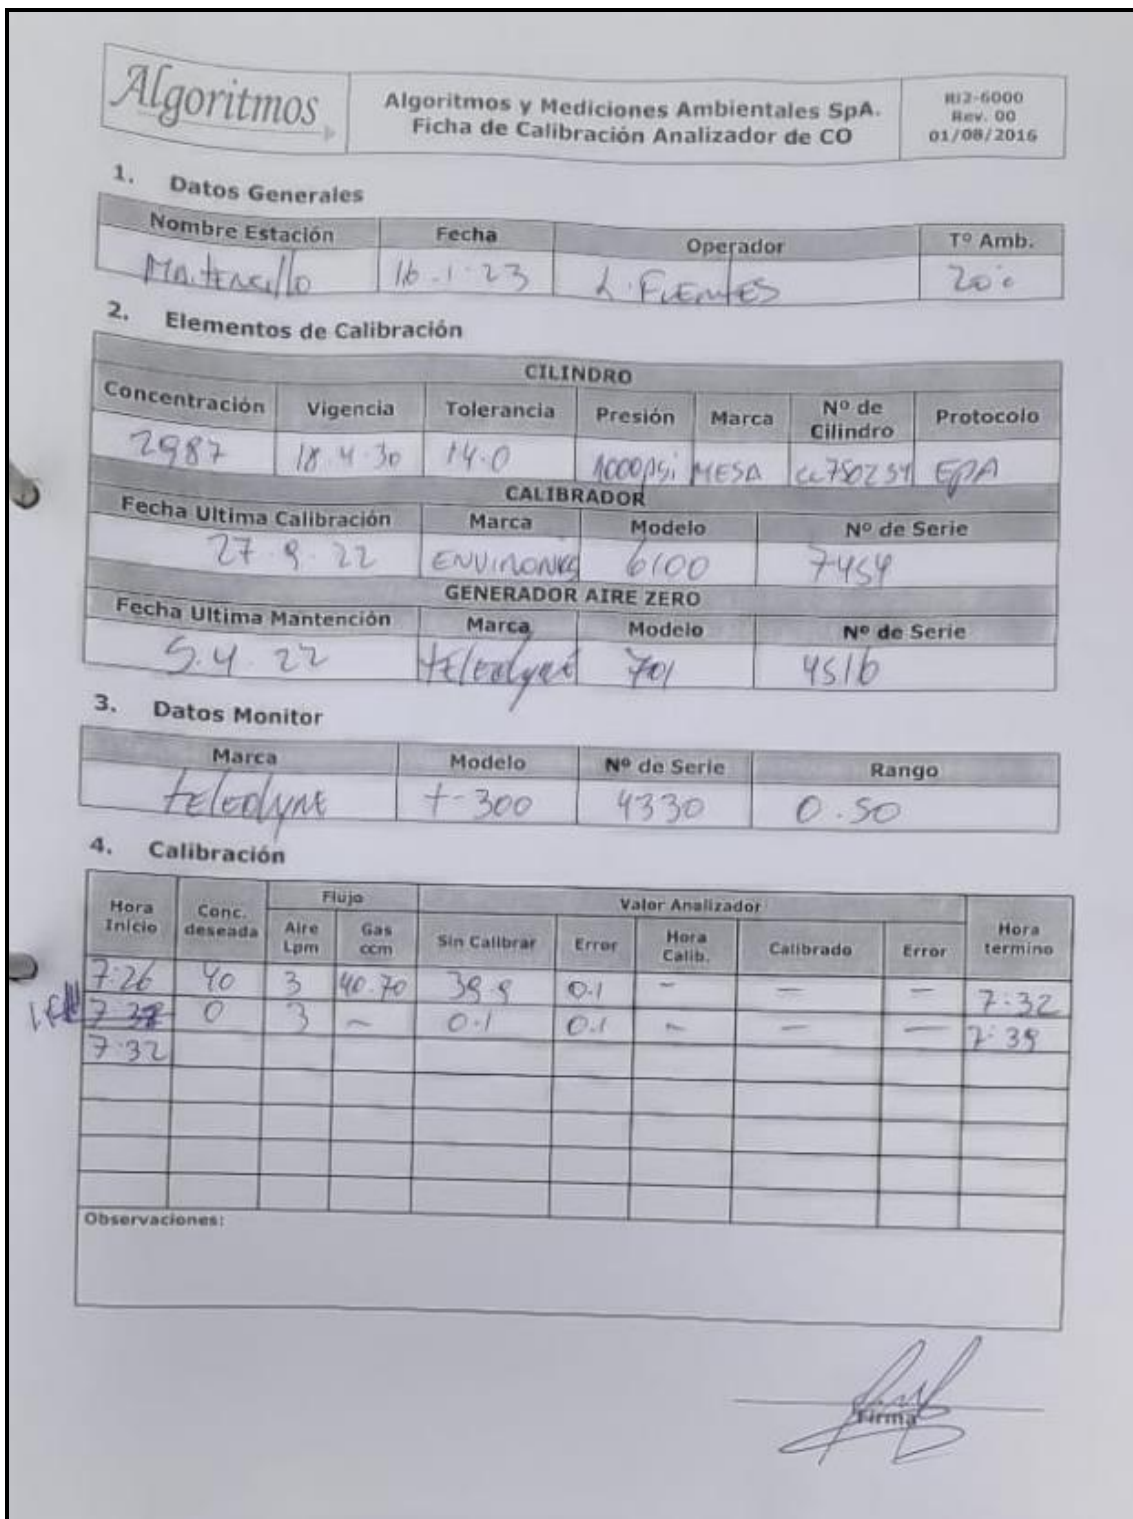 Algoritmos
Algoritmos y Mediciones Ambientales SpA.
Ficha de Calibración Analizador de CO
RI2-6000
Rev. 00
01/08/2016
1. Datos Generales
Nombre Estación Fecha Operador Tº Amb.
Maitencillo 16.1.23 L. FUENTES 20°c
2. Elementos de Calibración
CILINDRO
Concentración Vigencia Tolerancia Presión Marca Nº de Cilindro Protocolo
2987 18.4.30 14.0 1000psi MESA cc750234 EPA
CALIBRADOR
Fecha Ultima Calibración Marca Modelo Nº de Serie
27.9.22 6100 7454
GENERADOR AIRE ZERO
Fecha Ultima Mantención Marca Modelo Nº de Serie
5.4.22 teledyne 701 4516
3. Datos Monitor
Marca Modelo Nº de Serie Rango
teledyne t-300 4330 0.50
4. Calibración
Hora Inicio Conc. deseada Flujo Valor Analizador Hora termino
Aire Lpm Gas ccm Sin Calibrar Error Hora Calib. Calibrado Error
7:26 40 3 40.70 39.9 0.1 - - - 7:32
0 3 - 0.1 0.1 - - - 7:39
7:32
Observaciones:
Firma